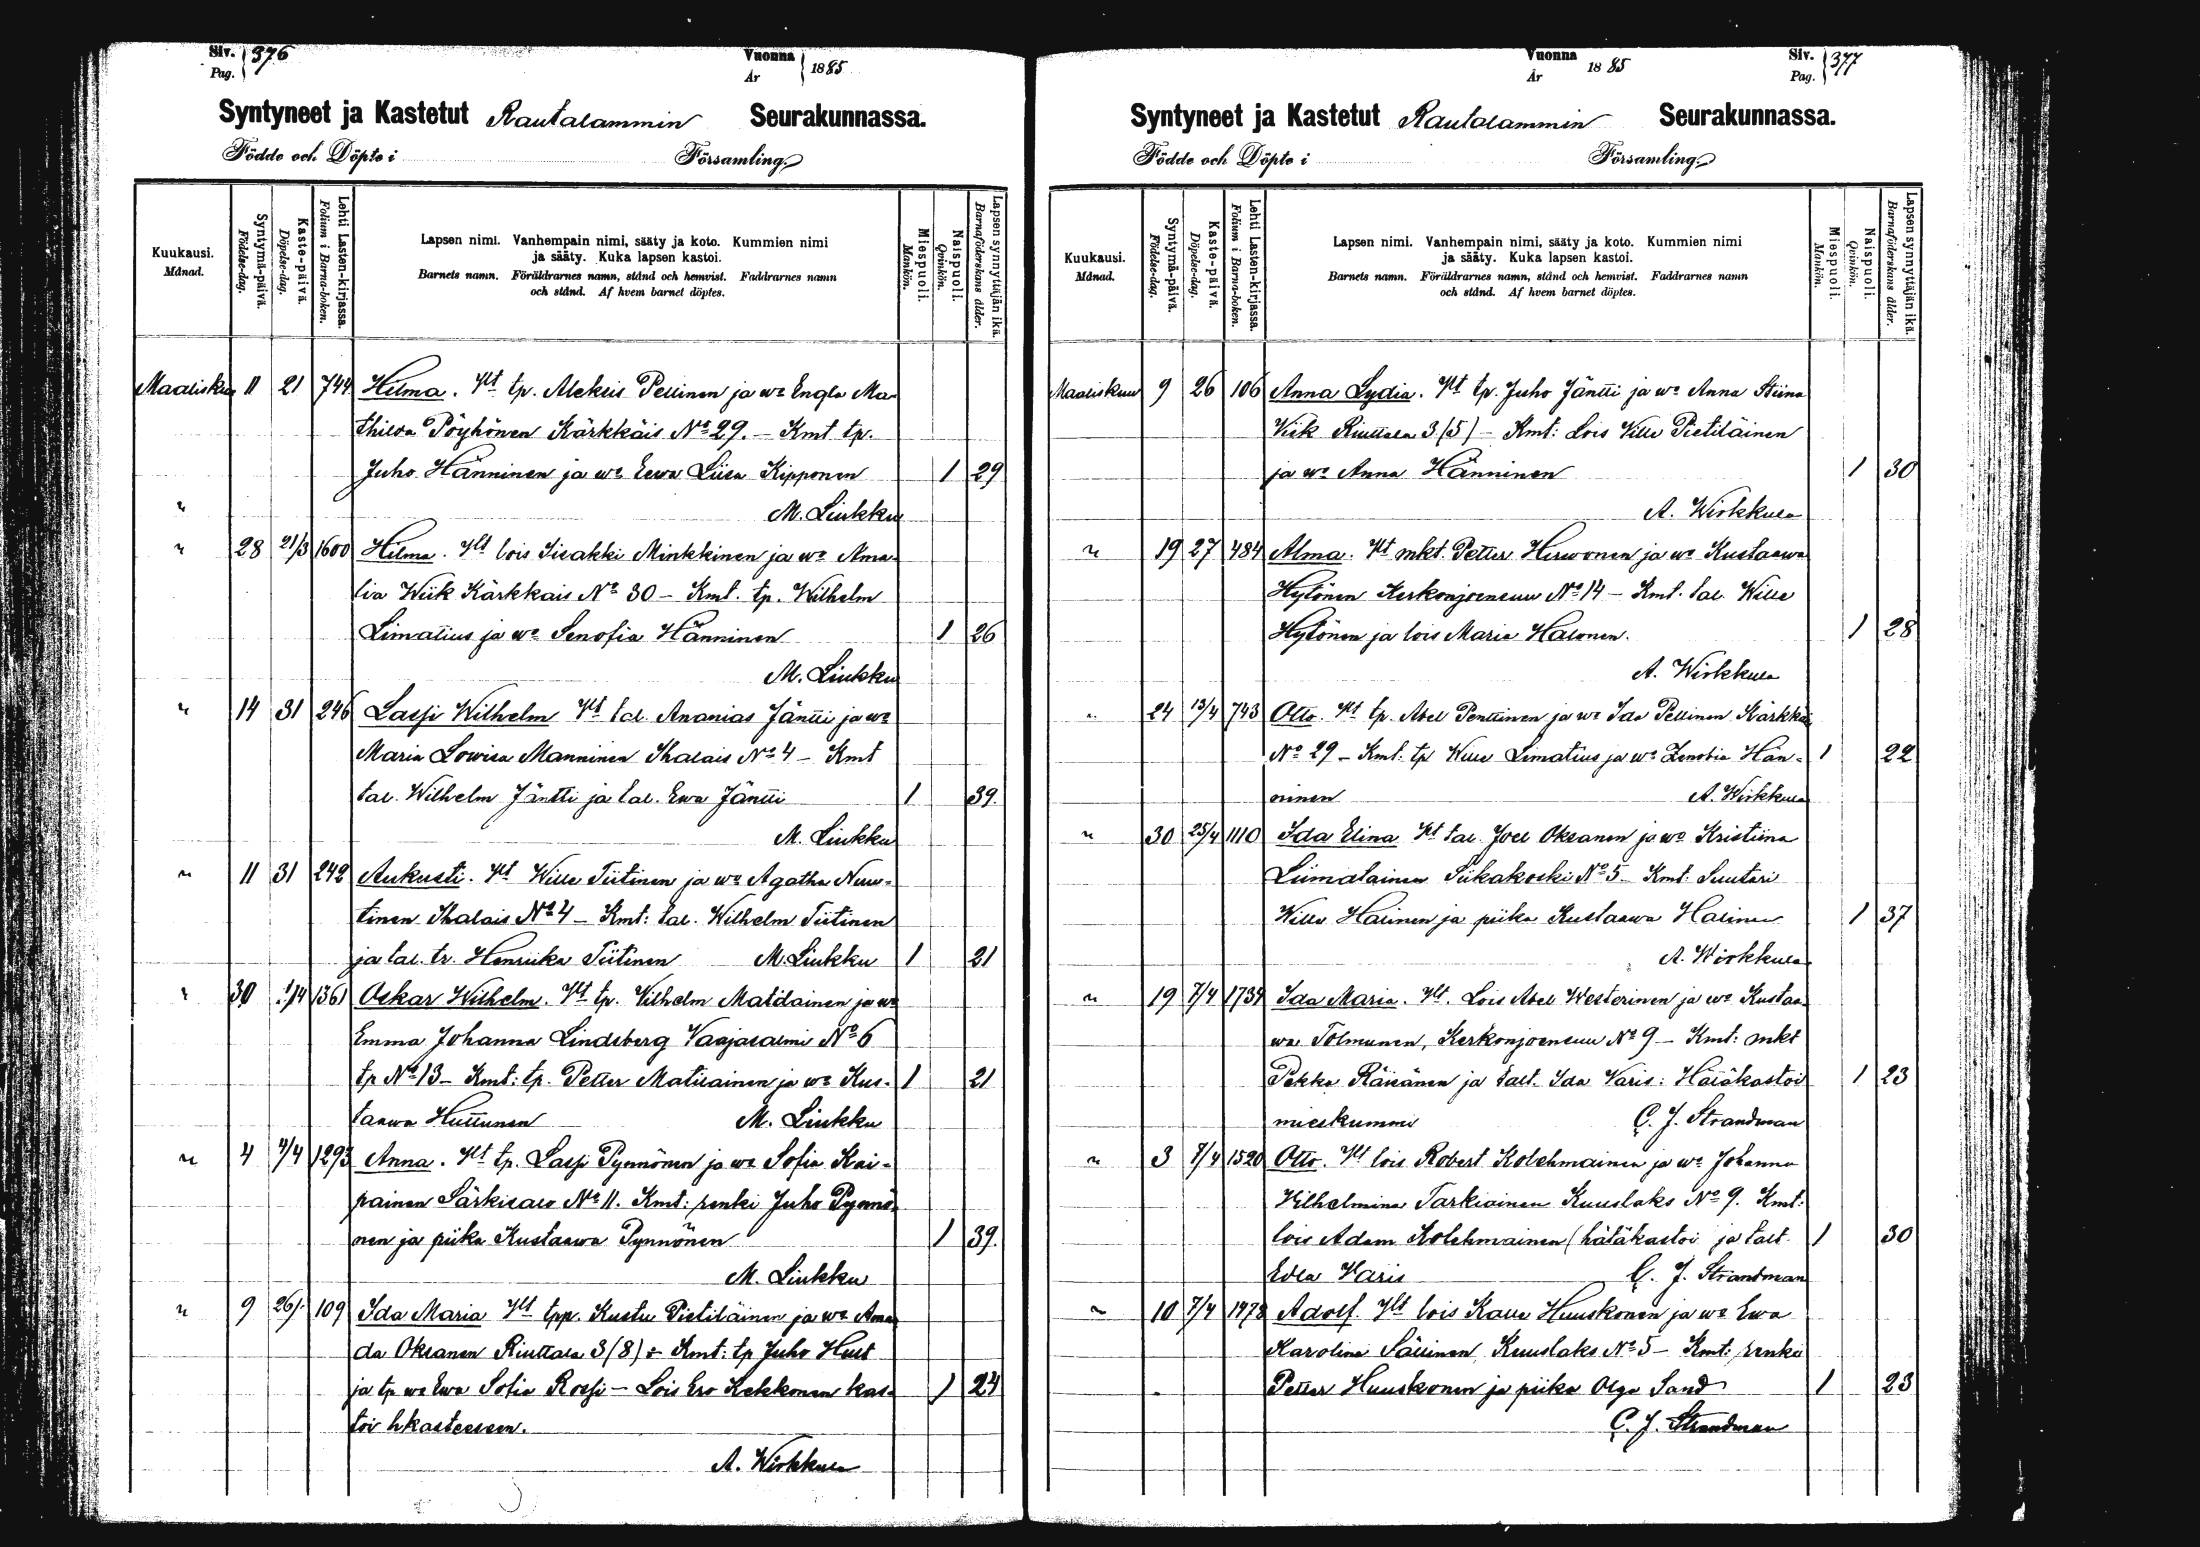 Siv. Pag. 376
Vuonna År 1885
Syntyneet ja Kastetut Rautalammin Seurakunnassa.
Födde och Döpte i Församling.
Kuukausi. Månad.
Syntymä-päivä. Födelse-dag.
Kaste-päivä. Döpelse-dag.
Lehti Lasten-kirjassa. Folium i Barna-boken.
Lapsen nimi. Vanhempain nimi, sääty ja koto. Kummien nimi
ja sääty. Kuka lapsen kastoi.
Barnets namn. Föräldrarnes namn, stånd och hemvist. Faddrarnes namn
och stånd. Af hvem barnet döptes.
Miespuoli. Mankön.
Naispuoli. Qvinkön.
Lapsen synnyttäjän ikä. Barnaföderskans ålder.
Maalisku 11 21 744 Hilma. Vlt tp. Aleksis Pellinen ja wo Engla Ma-
thilda Pöyhönen Kärkkäis No 29. – Kmt tp.
Juho Hänninen ja wo Eewa Liisa Kipponen 1 29
M. Liukku
" 28 21/3 1600 Hilma. Vlt lois Iisakki Minkkinen ja wo Ama-
lia Wiik Kärkkais No 30 – Kmt. tp. Wilhelm
Limatius ja wo Senofia Hänninen 1 26
M. Liukku
" 14 31 246 Lassi Wilhelm Vlt tal. Ananias Jäntti ja wo
Maria Lowisa Manninen Ihalais No 4 – Kmt
tal. Wilhelm Jäntti ja tal. Ewa Jäntti 1 39.
M. Liukku
" 11 31 242 Aukusti. Vlt Wille Tiitinen ja wo Agatha Nuu-
tinen Ihalais No 4 – Kmt: tal. Wilhelm Tiitinen
ja tal. tr. Henriika Tiitinen M. Liukku 1 21
" 30 1/4 1361 Oskar Wilhelm. Vlt tp. Vilhelm Matilainen ja wo
Emma Johanna Lindsberg Vaajasalmi No 6
tp No 13 – Kmt: tp. Petter Matilainen ja wo Kus- 1 21
taawa Huttunen M. Liukku
" 4 4/4 1293 Anna. Vlt tp. Lassi Pynnönen ja wo Sofia Kai-
painen Särkisalo No 11. Kmt: renki Juho Pynnö-
nen ja piika Kustaawa Pynnönen 1 39.
M. Liukku
" 9 26/. 109 Ida Maria Vlt tpp. Kustu Pietiläinen ja wo Aman
da Oksanen Riuttala 3 (8) ÷ Kmt: tp Juho Hult
ja tp wo Ewa Sofia Rossi – Lois Ero Kekkonen kas- 1 24
toi hkasteeseen.
A. Wirkkula
Siv. Pag. 377
Vuonna År 1885
Syntyneet ja Kastetut Rautalammin Seurakunnassa.
Födde och Döpte i Församling.
Kuukausi. Månad.
Syntymä-päivä. Födelse-dag.
Kaste-päivä. Döpelse-dag.
Lehti Lasten-kirjassa. Folium i Barna-boken.
Lapsen nimi. Vanhempain nimi, sääty ja koto. Kummien nimi
ja sääty. Kuka lapsen kastoi.
Barnets namn. Föräldrarnes namn, stånd och hemvist. Faddrarnes namn
och stånd. Af hvem barnet döptes.
Miespuoli. Mankön.
Naispuoli. Qvinkön.
Lapsen synnyttäjän ikä. Barnaföderskans ålder.
Maaliskuu 9 26 106 Anna Lydia. Vlt tp. Juho Jäntti ja wo Anna Stiina
Vick Riuttala 3 (5) – Kmt: Lois Ville Pietiläinen
ja wo Anna Hänninen 1 30
A. Wirkkula
" 19 27 484 Alma. Vt mkt. Petter Hirwonen ja wo Kustaawa
Hytönen Kerkonjoensuu No 14 – Kmt. tal. Wille
Hytönen ja lois Maria Halonen. 1 28
A. Wirkkula
" 24 13/4 743 Otto. Vt tp. Abel Penttinen ja wo Ida Pellinen Kärkkä
No 29 – Kmt: tp Wille Limatius ja wo Zenobia Hän- 1 22
ninen A. Wirkkula
" 30 25/4 1110 Ida Elina Vt tal. Joel Oksanen ja wo Kristiina
Liimatainen Siikakoski No 5 – Kmt: Suutari
Wille Halinen ja piika Kustaawa Halinen 1 37
A. Wirkkula
" 19 7/4 1739 Ida Maria. Vlt. Lois Abel Westerinen ja wo Kustaa-
wa Tolmunen, Kerkonjoensuu No 9 – Kmt: mkt
Pekka Räisänen ja talt. Ida Varis: Hätäkastoi 1 23
mieskummi C. J. Strandman
" 3 7/4 1520 Otto. Vlt lois Robert Kolehmainen ja wo Johanna
Vilhelmina Tarkiainen Kuuslaks No 9. Kmt:
lois Adam Kolehmainen (hätäkastoi ja talt. 1 30
Edla Varis C. J. Strandman
" 10 7/4 1978 Adolf. Vlt lois Kalle Huuskonen ja wo Ewa
Karolina Säisinen Kuuslaks No 5 – Kmt: renki
Petter Huuskonen ja piika Olga Sand 1 23
C. J. Strandman